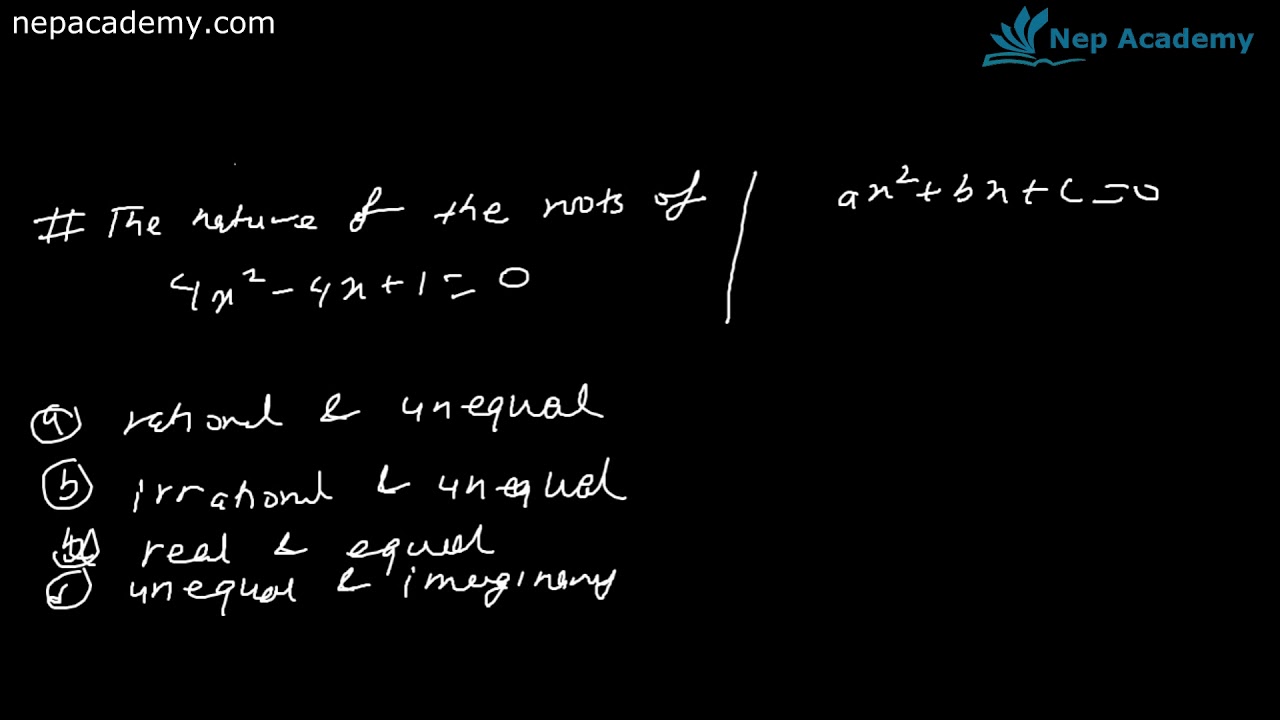 nepacademy.com
Nep Academy
# The nature of the roots of
4x² - 4x + 1 = 0
ax² + bx + c = 0
a rational & unequal
b irrational & unequal
real & equal
c unequal & imaginary